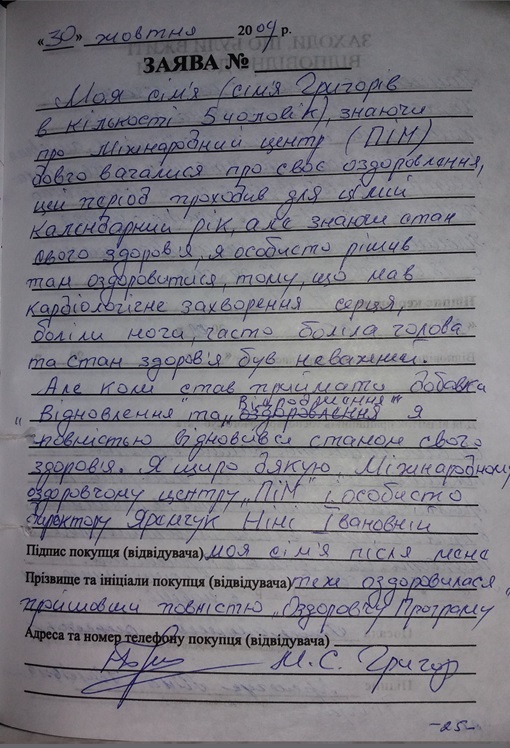 «30» жовтня 2009 р.
ЗАЯВА №
Моя сім'я (сім'я Григорів
в кількості 5 чоловік), знаючи
про Міжнародний центр (ПІМ)
довго вагалися про своє оздоровлення,
цей період проходив для цілий
календарний рік, але знаючи стан
свого здоров'я, я особисто рішив
там оздоровитися, тому, що мав
кардіологічне захворення серця,
боліли нога, часто боліла голова
та стан здоров'я був неважний.
Але коли став приймати добавки
"Відновлення" та "оздоровлення" я
повністью відновився станом свого
здоровія. Я щиро дякую Міжнародному
оздоровчому центру "ПІМ" і особисто
директору Яремчук Ніні Івановній
Підпис покупця (відвідувача) моя сім'я після мене
Прізвище та ініціали покупця (відвідувача) теж оздоровилася
пройшовши повністью "Оздоровчу Програму"
Адреса та номер телефону покупця (відвідувача)
М. С. Григор
-25-